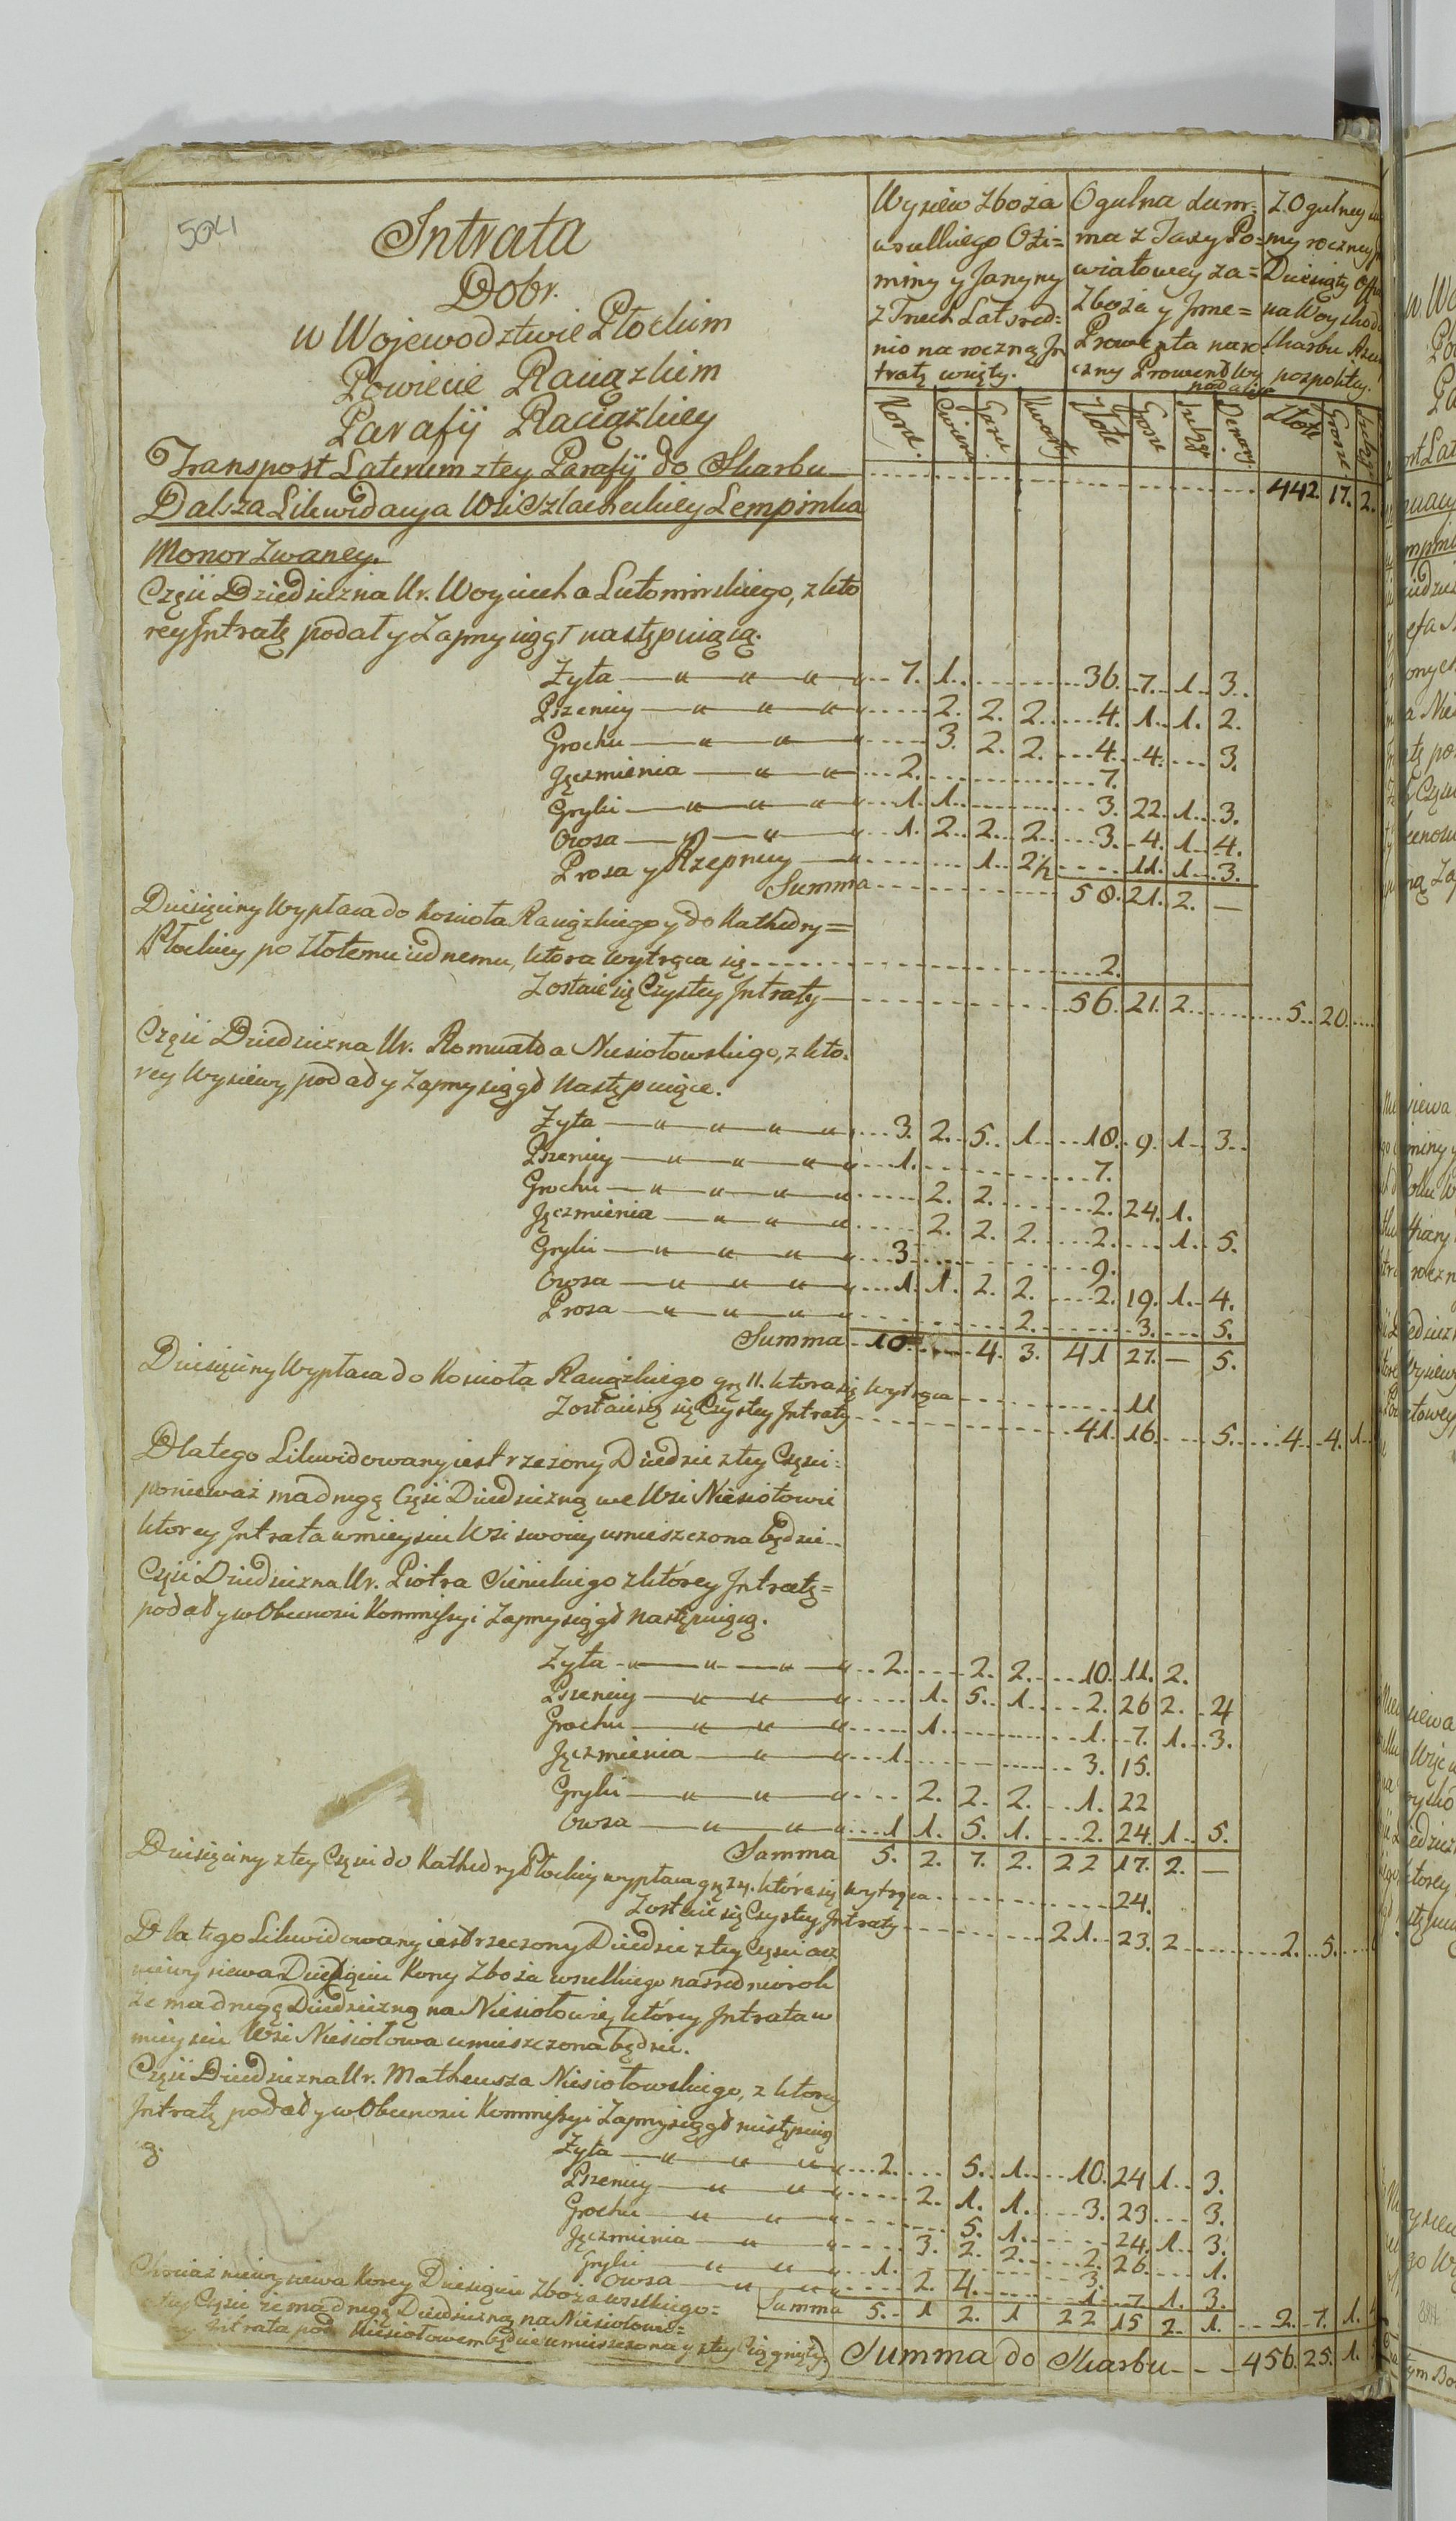 5041
Intrata
Dobr.
w Wojewodztwie Płockim
Powiecie Raciązkim
Parafij Raciązkiey
Wysiew Zboża
wszelkiego Ozi=
miny y Jarzyny
z Trzech Lat sred=
nio na roczną In
tratę wzięty.
Ogulna Sum=
ma z Taxy Po=
wiatowey za=
Zboża y Jnne=
Prowenta na ro
czny Prowent Wy
padaiąca
Z Ogulney
my roczney
Dziesiąty
na Woysko
Skarbu Rzeczy
pospolitey.
Korce Cwierci Garce Kwarty Złote Grosze Szelągi Denary Złote Grosze Szelągi
Transport Laterum z tey Parafij do Skarbu 442. 17. 2.
Dalsza Likwidacya Wsi Szlacheckiey Lempinka
Monor zwaney.
Częsc Dziedziczna Ur. Woyciecha Lutomirskiego, z kto
rey Intratę podał y Zaprzysiągł następuiącą.
Zyta 7. 1. 36. 7. 1. 3.
Pszenicy 2. 2. 2. 4. 1. 1. 2.
Grochu 3. 2. 2. 4. 4. 3.
Jęczmienia 2. 7.
Gryki 1. 1. 3. 22. 1. 3.
Owsa 1. 2. 2. 2. 3. 4. 1. 4.
Prosa y Rzepnicy 1. 2½ 11. 1. 3.
Summa 58. 21. 2. —
Dziesięciny Wypłaca do Kościoła Raciązkiego y do Kathedry=
Płockiey po Złotemu iednemu, ktora wytrąca się 2.
Zostaie się Czystey Intraty 56. 21. 2. 5. 20.
Częsc Dziedziczna Ur. Romualda Niesiołowskiego, z kto=
rey Wysiewy podał y zaprzysiągł Następuiące.
Zyta 3. 2. 5. 1. 18. 9. 1. 3.
Pszenicy 1. 7.
Grochu 2. 2. 2. 24. 1.
Jęczmienia 2. 2. 2. 2. 1. 5.
Gryki 3. 9.
Owsa 1. 1. 2. 2. 2. 19. 1. 4.
Prosa 2. 3. 5.
Summa 10. 4. 3. 41 27. — 5.
Dziesięciny Wypłaca do Kościoła Raciązkiego gr. 11. ktora się wytrąca 11
Zostaie się Czystey Intraty 41. 16. 5. 4. 4. 1
Dlatego Likwidowany iest rzeczony Dziedzic z tey Częsci=
ponieważ ma drugą Częsc Dziedziczną we Wsi Niesiołowie
ktorey Intrata w mieyscu Wsi swoiey umieszczona będzie
Częsc Dziedziczna Ur. Piotra Sienickiego z którey Intratę=
podał y w Obecnosci Kommissyi Zaprzysiągł Następuiącą.
Zyta 2. 2. 2. 10. 11. 2.
Pszenicy 1. 5. 1. 2. 26 2. 4
Grochu 1. 1. 7. 1. 3.
Jęczmienia 1. 3. 15.
Gryki 2. 2. 2. 1. 22
Owsa 1 1. 5. 1. 2. 24. 1. 5.
Summa 5. 2. 7. 2. 22 17. 2. —
Dziesięciny z tey Częsci do Kathedry Płockiey wypłaca gr. 24. które się wytrąca 24.
Zostaie się Czystey Intraty 21. 23. 2 2. 5.
Dlatego Likwidowany iest rzeczony Dziedzic z tey Częsci acz
niewysiewa Dziesięciu Korcy Zboża wszelkiego na sredni rok
że ma drugą Dziedziczną na Niesiołowie, którey Intrata w
mieyscu Wsi Niesiołowa umieszczona będzie.
Częsc Dziedziczna Ur. Matheusza Niesiołowskiego, z ktorey
Intratę podał y w Obecnosci Kommissyi Zaprzysiągł nastepuią
cą.
Zyta 2. 5. 1. 10. 24 1. 3.
Pszenicy 2. 1. 1. 3. 23 3.
Grochu 5. 1. 24. 1. 3.
Jęczmienia 3. 2. 2. 2. 26. 1.
Gryki 1. 3.
Owsa 2. 4. 1. 7 1. 3.
Summa 5. 1 2. 1 22 15 2. 1. 2. 7. 1.
Chociaż niewysiewa Korcy Dziesięciu Zboża wszelkiego=
tey Częsci że ma drugą Dziedziczną na Niesiołowie=
Intrata pod Niesiołowem będzie umieszczona y z tey Ciągnięty
Summa do Skarbu 456. 25. 1.